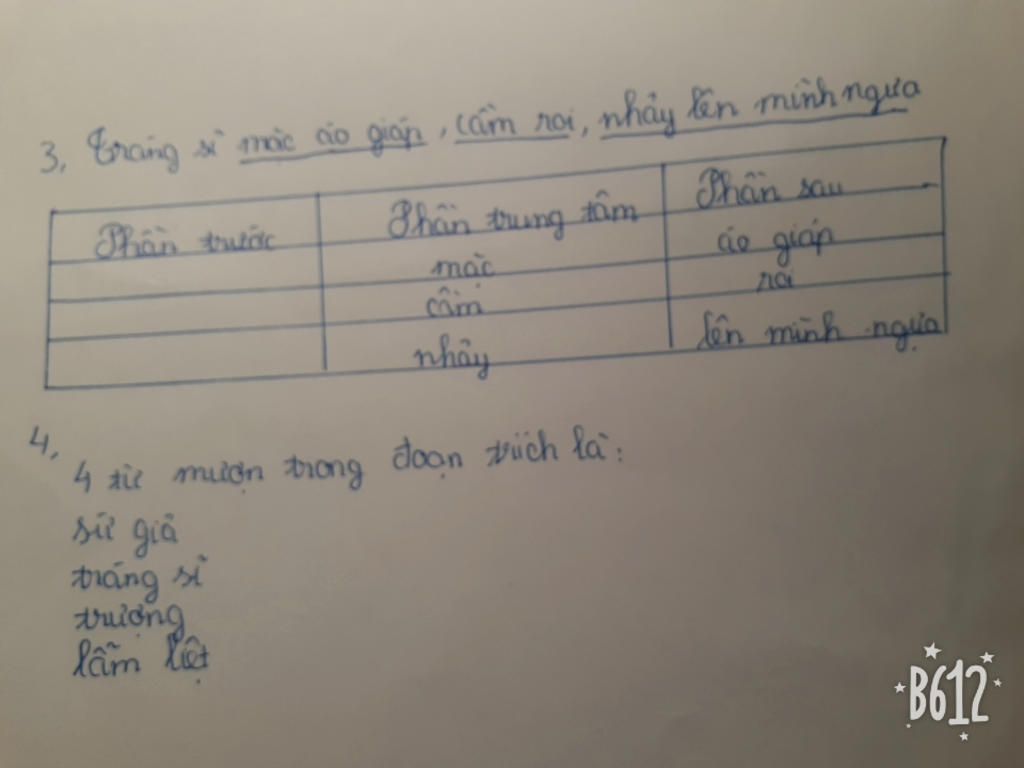 3, Tráng sĩ mặc áo giáp, cầm roi, nhảy lên mình ngựa
Phần trước Phần trung tâm Phần sau
mặc áo giáp
cầm roi
nhảy lên mình ngựa
4,
4 từ mượn trong đoạn trích là:
sứ giả
tráng sĩ
trượng
lẫm liệt
B612